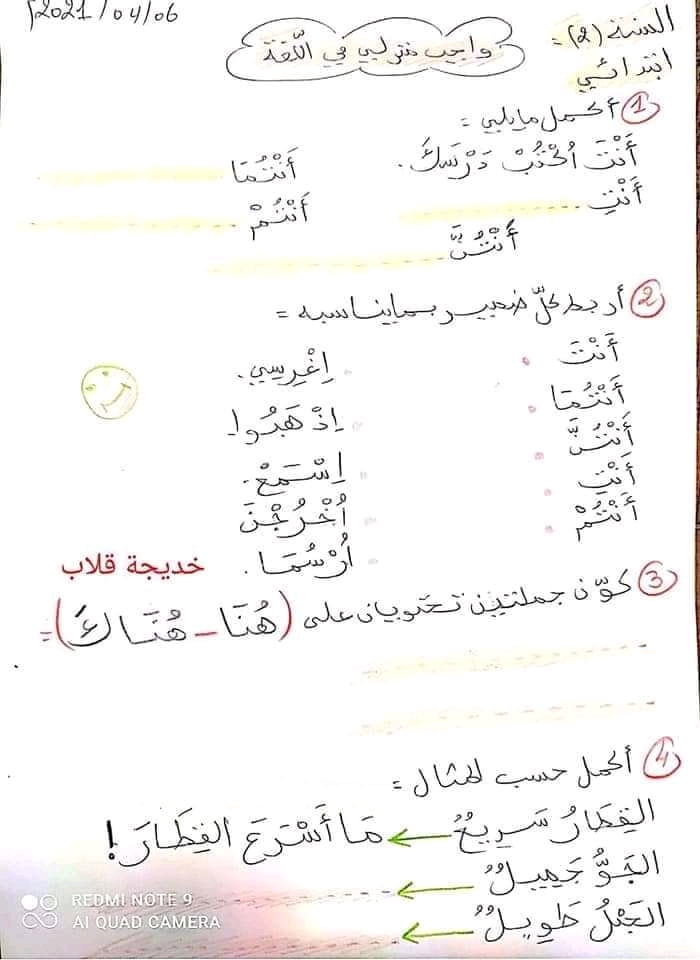 2021/04/06م
السنة (2) =
ابتدائي
واجب منزلي في اللّغة
1 أكمل مايلي =
أَنْتَ اُكْتُبْ دَرْسَكَ. أَنْتُمَا
أَنْتِ أَنْتُمْ
أَنْتُنَّ
2 أربط كلّ ضمير بما يناسبه =
أَنْتَ اِغْرِسِي.
أَنْتُمَا اِذْهَبُوا.
أَنْتُنَّ اِسْمَعْ.
أَنْتِ اُخْرُجْنَ
أَنْتُمْ اُرْسُمَا.
خديجة قلاب
3 كوّن جملتين تحتويان على (هُنَا - هُنَاكَ) =
4 أكمل حسب المثال =
القِطَارُ سَرِيعٌ ← مَا أَسْرَعَ القِطَارَ!
الجَوُّ جَمِيلٌ ←
الحَبْلُ طَوِيلٌ ←
REDMI NOTE 9
AI QUAD CAMERA